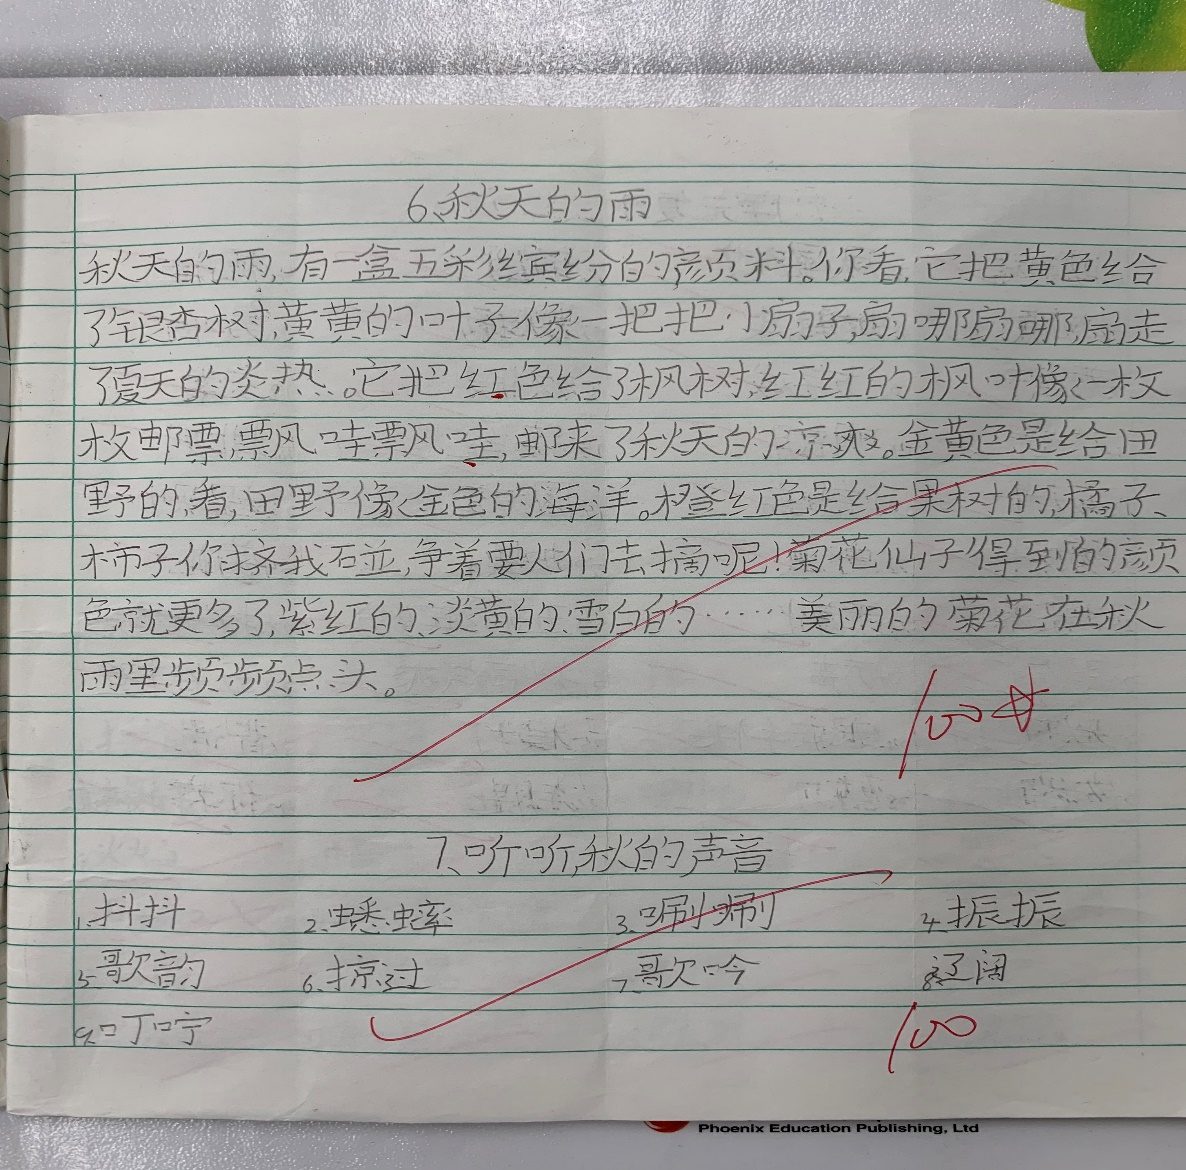 6、秋天的雨
秋天的雨,有一盒五彩缤纷的颜料。你看,它把黄色给
了银杏树,黄黄的叶子像一把把小扇子,扇哪扇哪,扇走
了夏天的炎热。它把红色给了枫树,红红的枫叶像一枚
枚邮票,飘哇飘哇,邮来了秋天的凉爽。金黄色是给田
野的,看,田野像金色的海洋。橙红色是给果树的,橘子、
柿子你挤我碰,争着要人们去摘呢!菊花仙子得到的颜
色就更多了,紫红的、淡黄的、雪白的……美丽的菊花在秋
雨里频频点头。
100☆
7、听听,秋的声音
1、抖抖 2、蟋蟀 3、唰唰 4、振振
5、歌韵 6、掠过 7、歌吟 8、辽阔
9、叮咛
100
Phoenix Education Publishing, Ltd